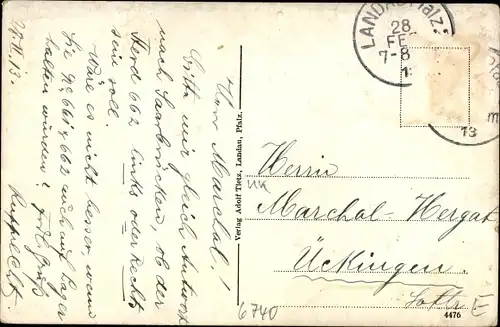 27.II.13.
Herrn Marchal!
Bitte mir gleich Antwort
nach Saarbrücken, ob der
Herd 662 links oder Rechts
sein soll.
Wäre es nicht besser wenn
Sie No 661 & 662 auch auf Lager
halten würden? Frdl. Gruß
Rupprecht
Verlag Adolf Tietz, Landau, Pfalz.
LANDAU Pfalz
28
FE
7-8
1
13
Herrn
Marchal-Hergat
Ückingen.
Lothr
E
6740
4476